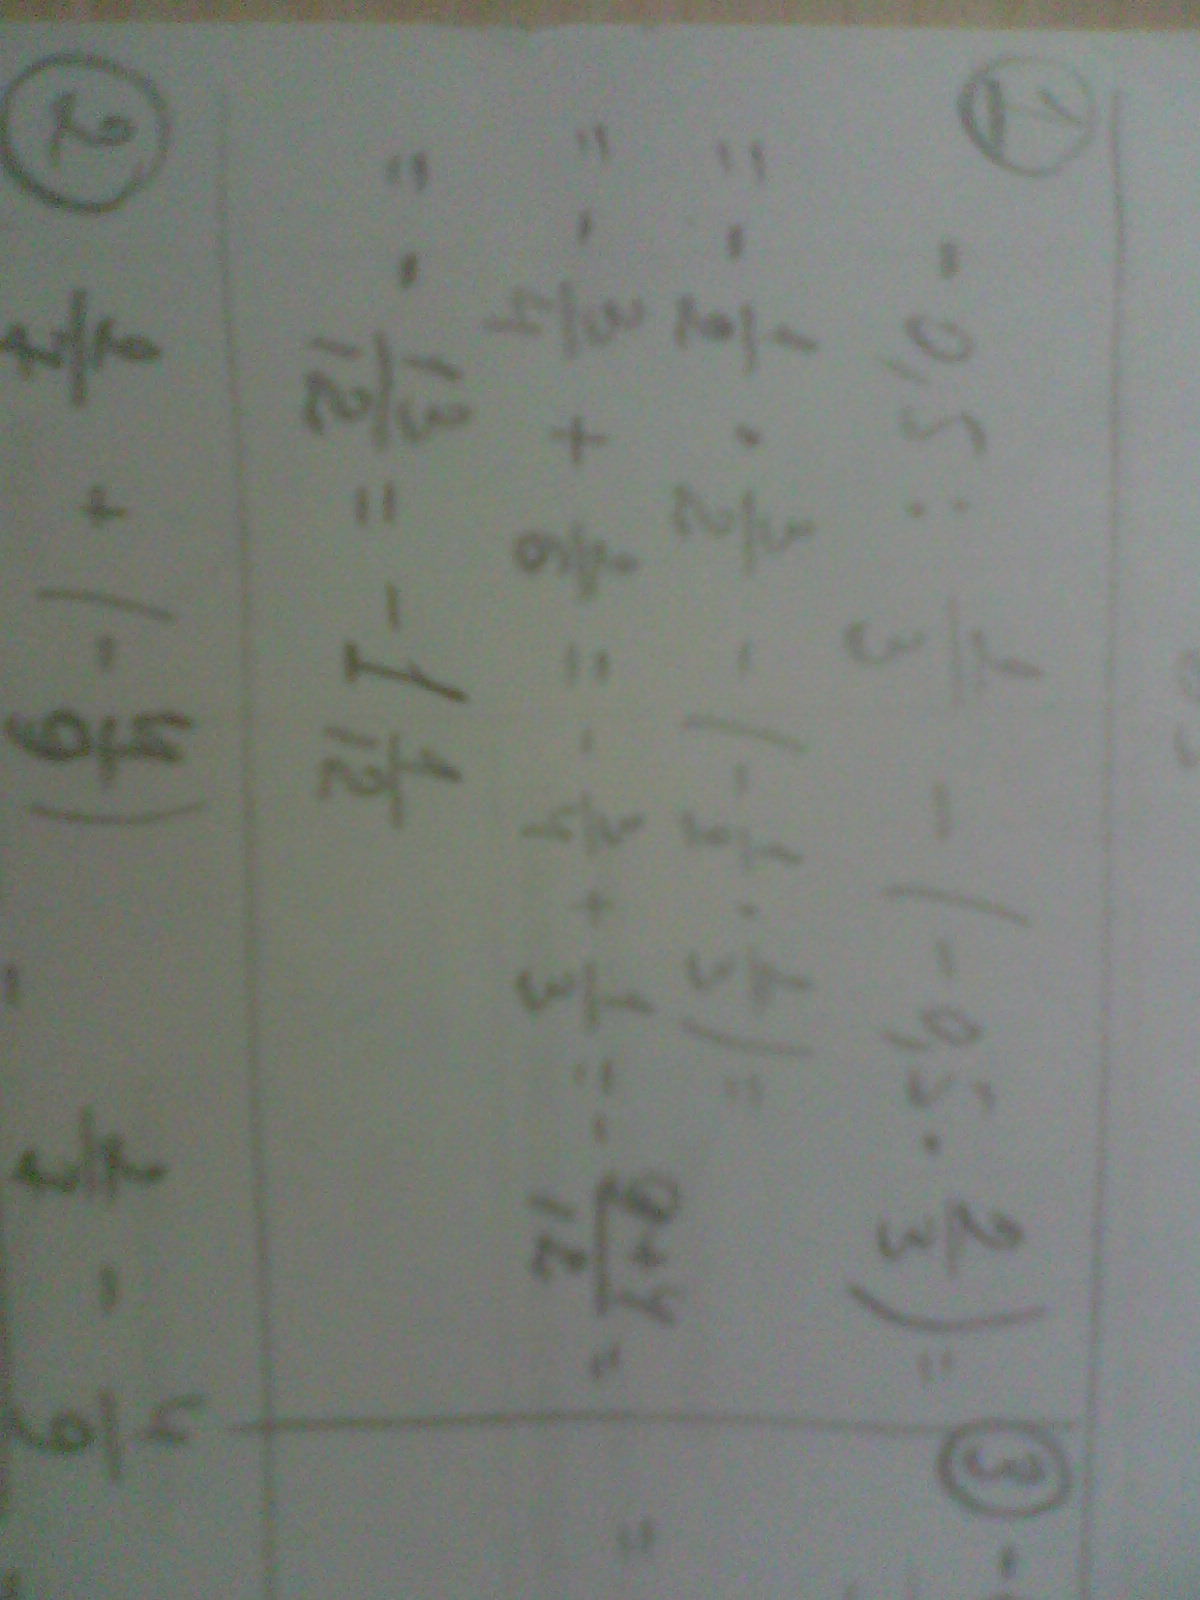 ① - 0,5 : 1/3 - (-0,5 · 2/3) =
= - 1/2 · 3/2 - (-1/2 · 2/3) =
= - 3/4 + 2/6 = - 3/4 + 1/3 = - 9+4/12 =
= - 13/12 = - 1 1/12
② 2/7 + (- 4/9) 2/7 - 4/9
③ -
=